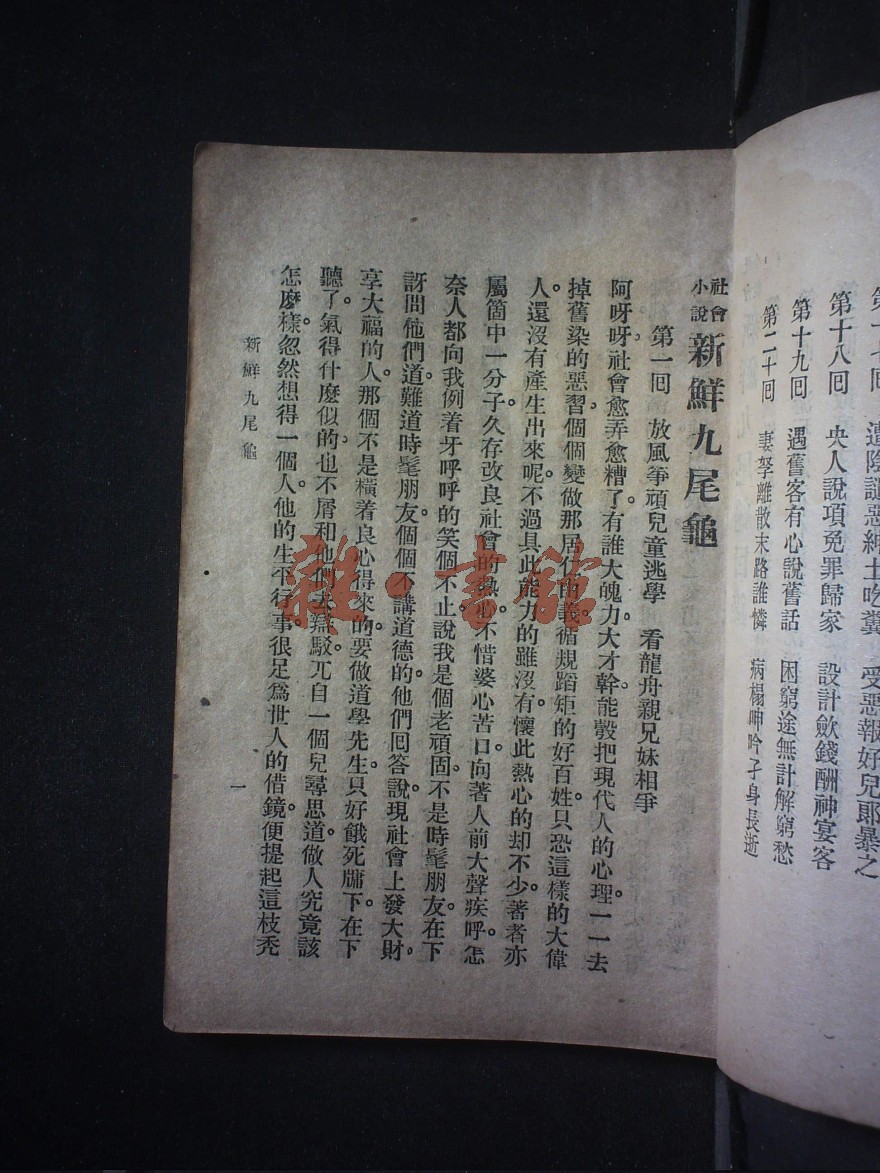 第十八回　央人說項免罪歸家　設計斂錢酬神宴客
第十九回　遇舊客有心說舊話　困窮途無計解窮愁
第二十回　妻孥離散末路誰憐　病榻呻吟孑身長逝
社會小說 新鮮九尾龜
第一回　放風箏頑兒童逃學　看龍舟親兄妹相爭
阿呀呀社會愈弄愈糟了。有誰大魄力大才幹能彀把現代人的心理一一去
掉舊染的惡習個個變做那居仁由義循規蹈矩的好百姓只恐這樣的大偉
人。還沒有產生出來呢不過具此能力的雖沒有。懷此熱心的却不少。著者亦
屬箇中一分子。久存改良社會的熱心。不惜婆心苦口。向著人前大聲疾呼。怎
奈人都向我例着牙呼呼的笑個不止。說我是個老頑固。不是時髦朋友。在下
訝問他們道難道時髦朋友。個個不講道德的。他們回答說。現社會上發大財。
享大福的人。那個不是橫着良心得來的。要做道學先生。只好餓死牖下。在下
聽了。氣得什麼似的。也不屑和他們去辯駁。兀自一個兒尋思道。做人究竟該
怎麼樣。忽然想得一個人。他的生平行事。很足爲世人的借鏡。便提起這枝禿
新鮮九尾龜
一
雜·書館